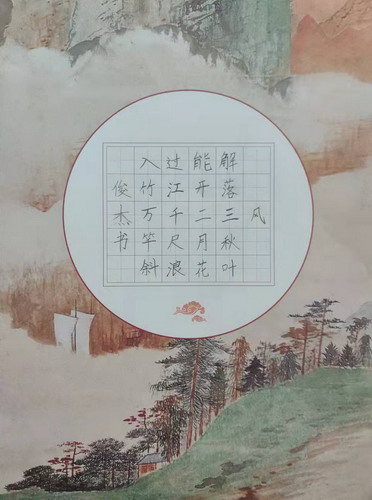 风
解落三秋叶
能开二月花
过江千尺浪
入竹万竿斜
俊杰书